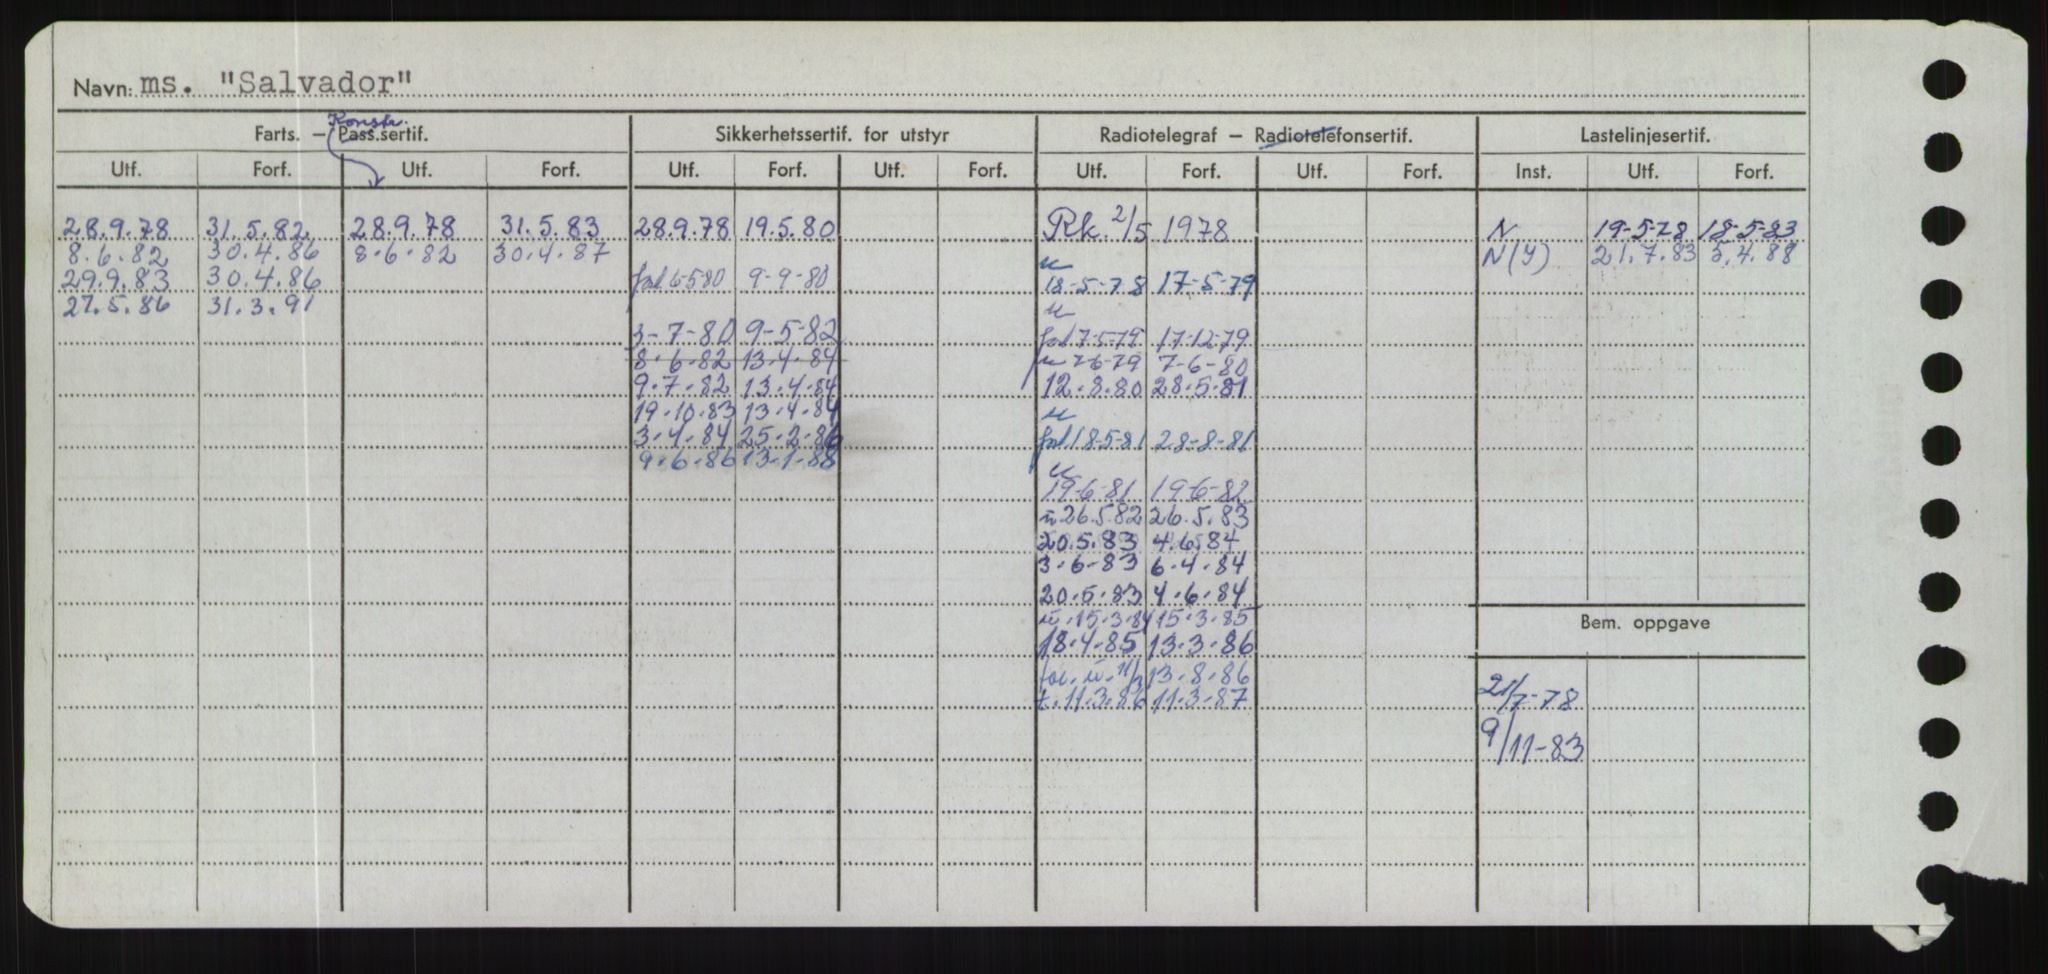 Navn: ms. "Salvador"
Konstr.
Farts. – Pass.sertif. Sikkerhetssertif. for utstyr Radiotelegraf – Radiotelefonsertif. Lastelinjesertif.
Utf. Forf. Utf. Forf. Utf. Forf. Utf. Forf. Utf. Forf. Utf. Forf. Inst. Utf. Forf.
28.9.78 31.5.82 28.9.78 31.5.83 28.9.78 19.5.80 Rk. 2/5 1978 N 19-5-78 18-5-83
8.6.82 30.4.86 8.6.82 30.4.87 N(Y) 21.7.83 5.4.88
29.9.83 30.4.86 6-5-80 9-9-80 18-5-78 17-5-79
27.5.86 31.3.91
3-7-80 9-5-82 17-5-79 17-12-79
8.6.82 13.4.84 7-6-79 7-6-80
9.7.82 13.4.84 12.8.80 28.5.81
19.10.83 13.4.84
3.4.84 25.2.86 18-5-81 28-8-81
9.6.86 13.1.88
19-6-81 19-6-82
26.5.82 26.5.83
20.5.83 4.6.84
3.6-83 6.4.84
20.5.83 4.6.84
15.3.84 15.3.85
Bem. oppgave
18.4.85 13.3.86
13.8.86
21/7-78
11.3.86 11.3.87
9/11-83